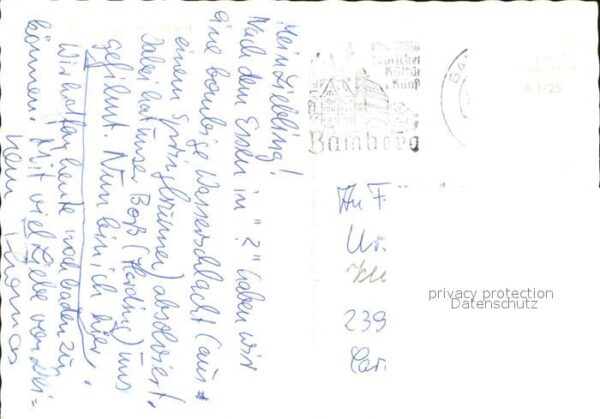 Mein Liebling!
Nach dem Essen in "?" haben wir
eine bombige Wasserschlacht (aus
einem Springbrunnen) absolviert.
Dabei hat unser Boß (Harding) uns
gefilmt. Nun bin ich hier.
Wir hoffen heute noch baden zu
können. Mit viel Liebe von Dei-
nem Thomas
alte Stätte
deutscher
Kultur
u. Kunst
Bamberg
An F
Ur.
239
Car.
privacy protection
Datenschutz